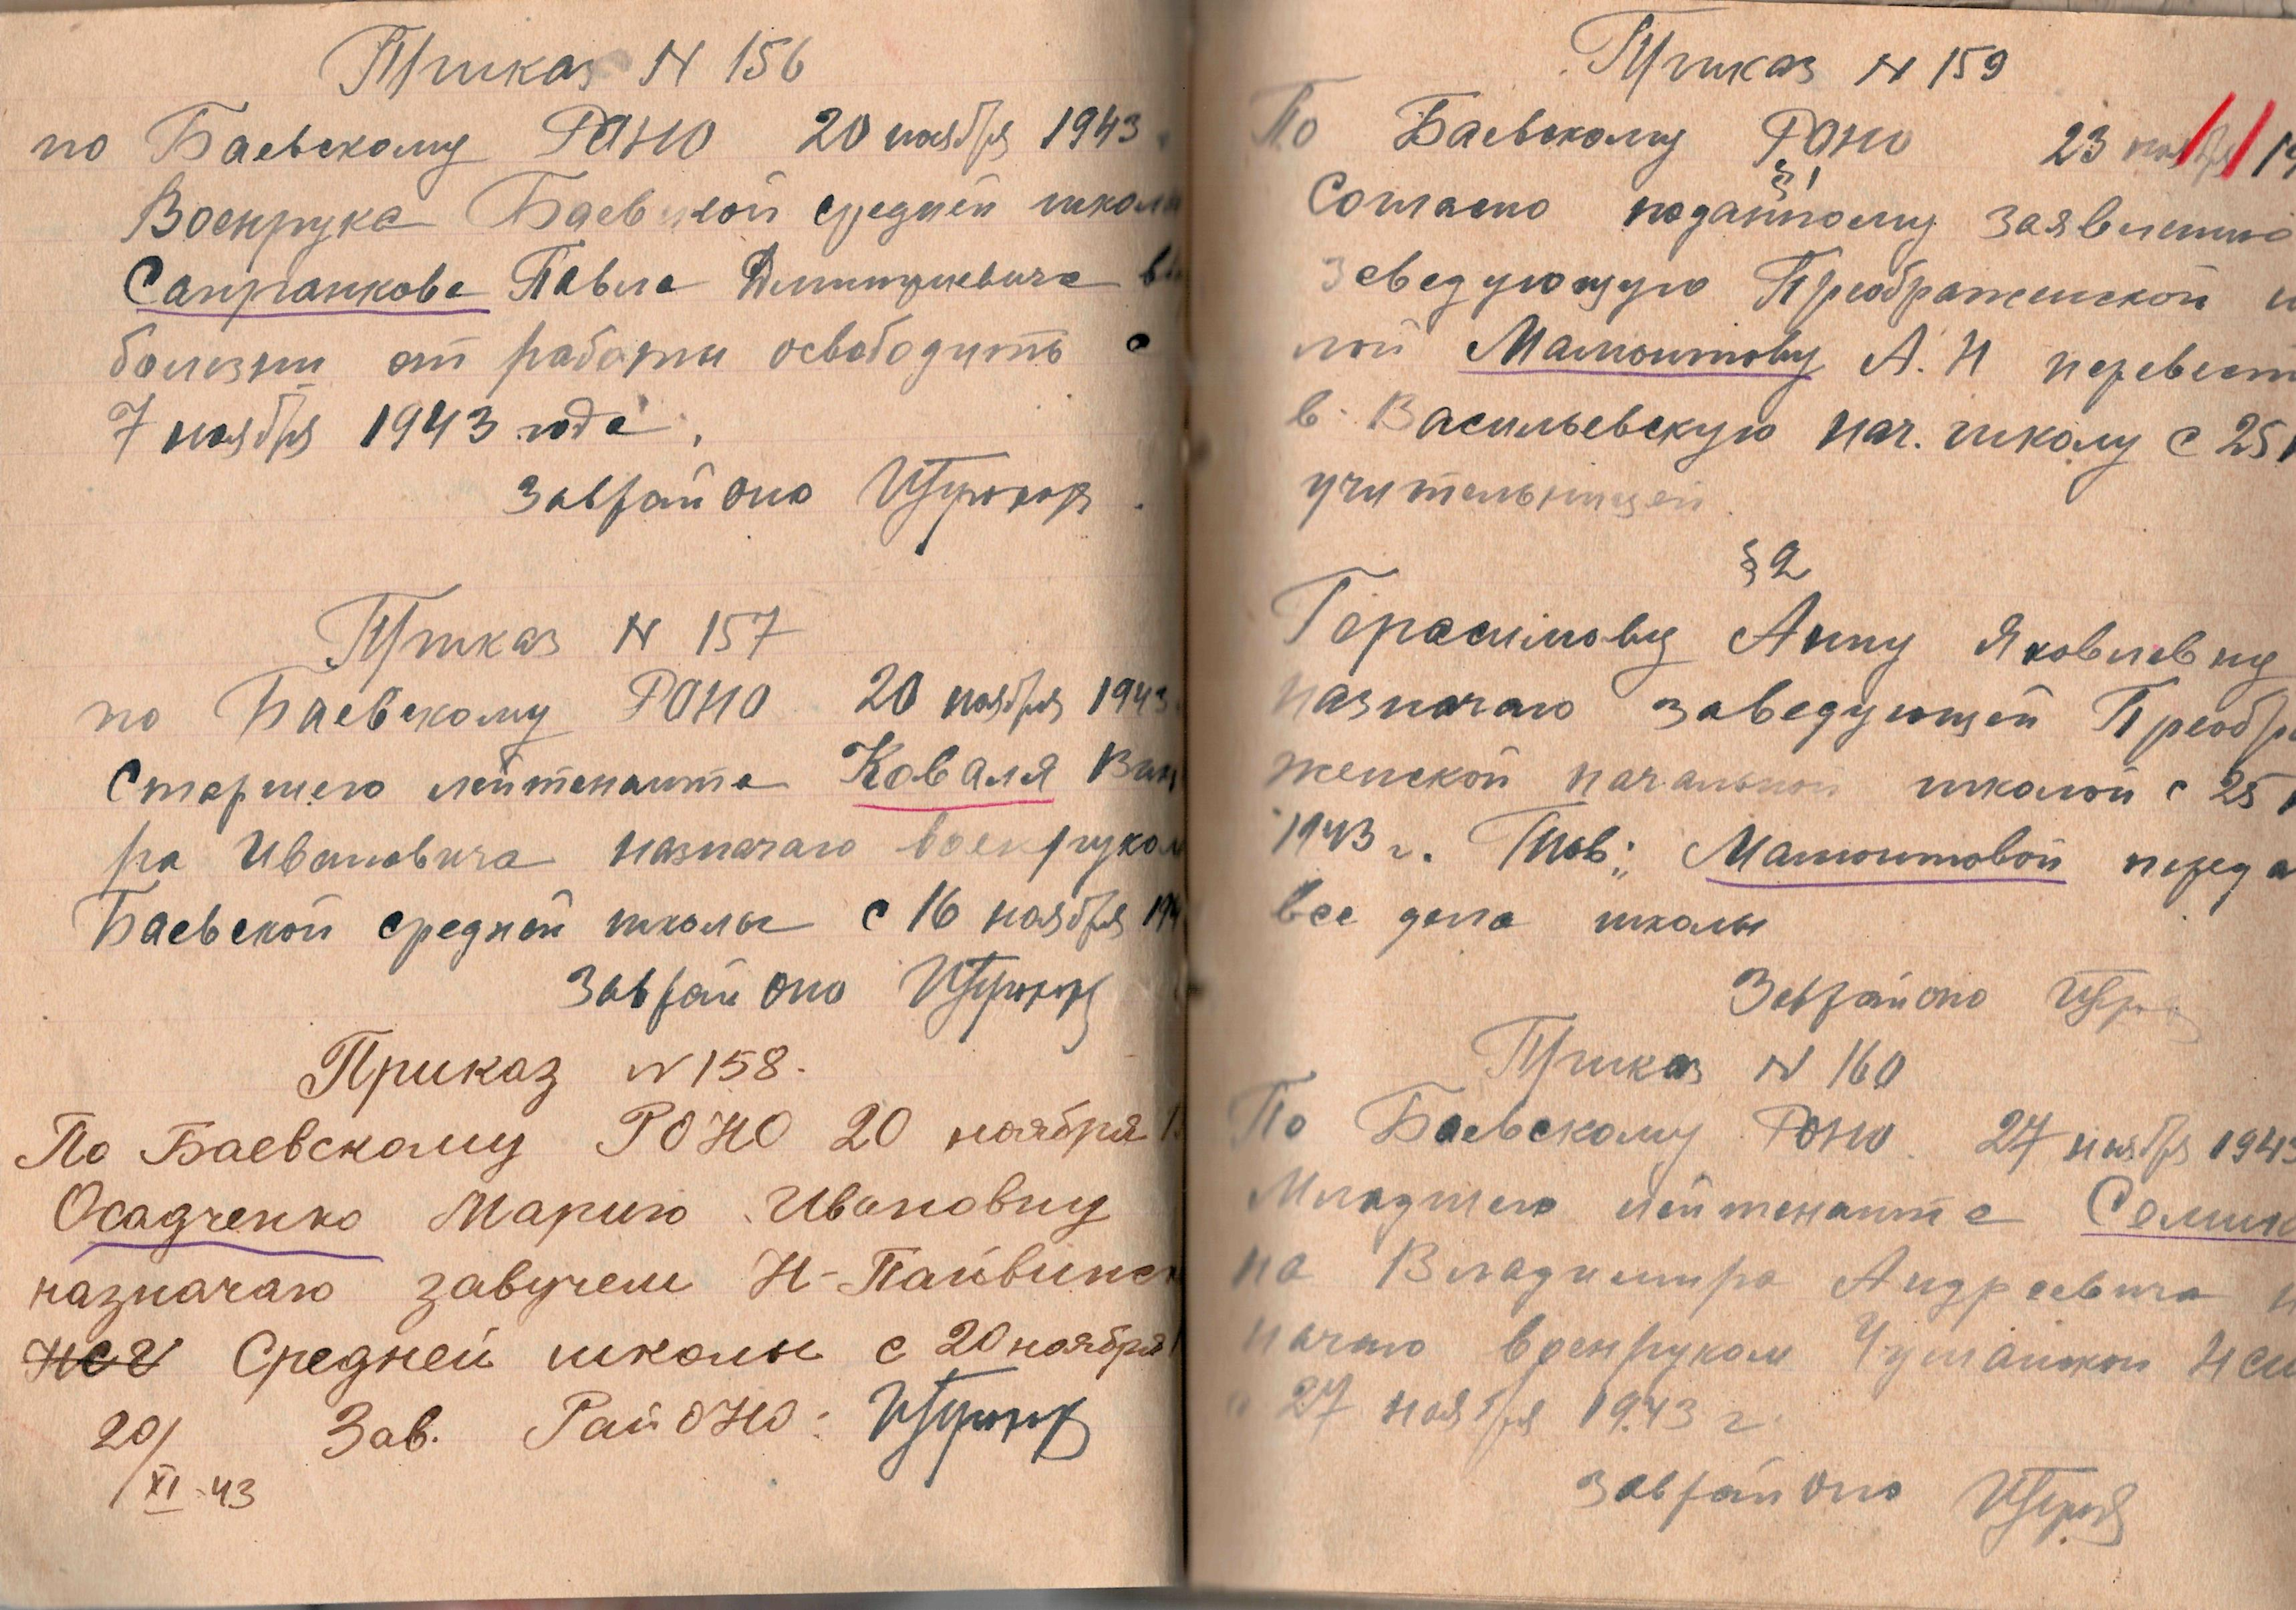 Приказ N 156
по Баевскому РОНО 20 ноября 1943
Военрука Баевской средней школы
Сапранкова Павла Дмитриевича
болезни от работы освободить с
7 ноября 1943 года.
Заврайоно
Приказ N 157
по Баевскому РОНО 20 ноября 1943
Старшего лейтенанта Коваля
ра Ивановича назначаю военруком
Баевской средней школы с 16 ноября 194
Заврайоно
Приказ N 158.
По Баевскому РОНО 20 ноября 1
Осадченко Марию Ивановну
назначаю завучем Н-Пайвинск
Средней школы с 20 ноября 1
20/XI-43 Зав. РайОНО:
Приказ N 159
По Баевскому РОНО 23 ноября 19
§1
Согласно поданному заявлению
Заведующую Преображенской
лой Мамонтову А.Н перевест
в Васильевскую нач. школу с 25
учительницей
§2
Герасимову Анну Яковлевну
назначаю заведующей Преобра
женской начальной школой с 25
1943 г. Тов: Мамонтовой переда
все дела школы
Заврайоно
Приказ N 160
По Баевскому РОНО. 27 ноября 1943
Младшего лейтенанта Семик
на Владимира Андреевича
начаю военруком Чуманской НСШ
с 27 ноября 1943 г.
Заврайоно